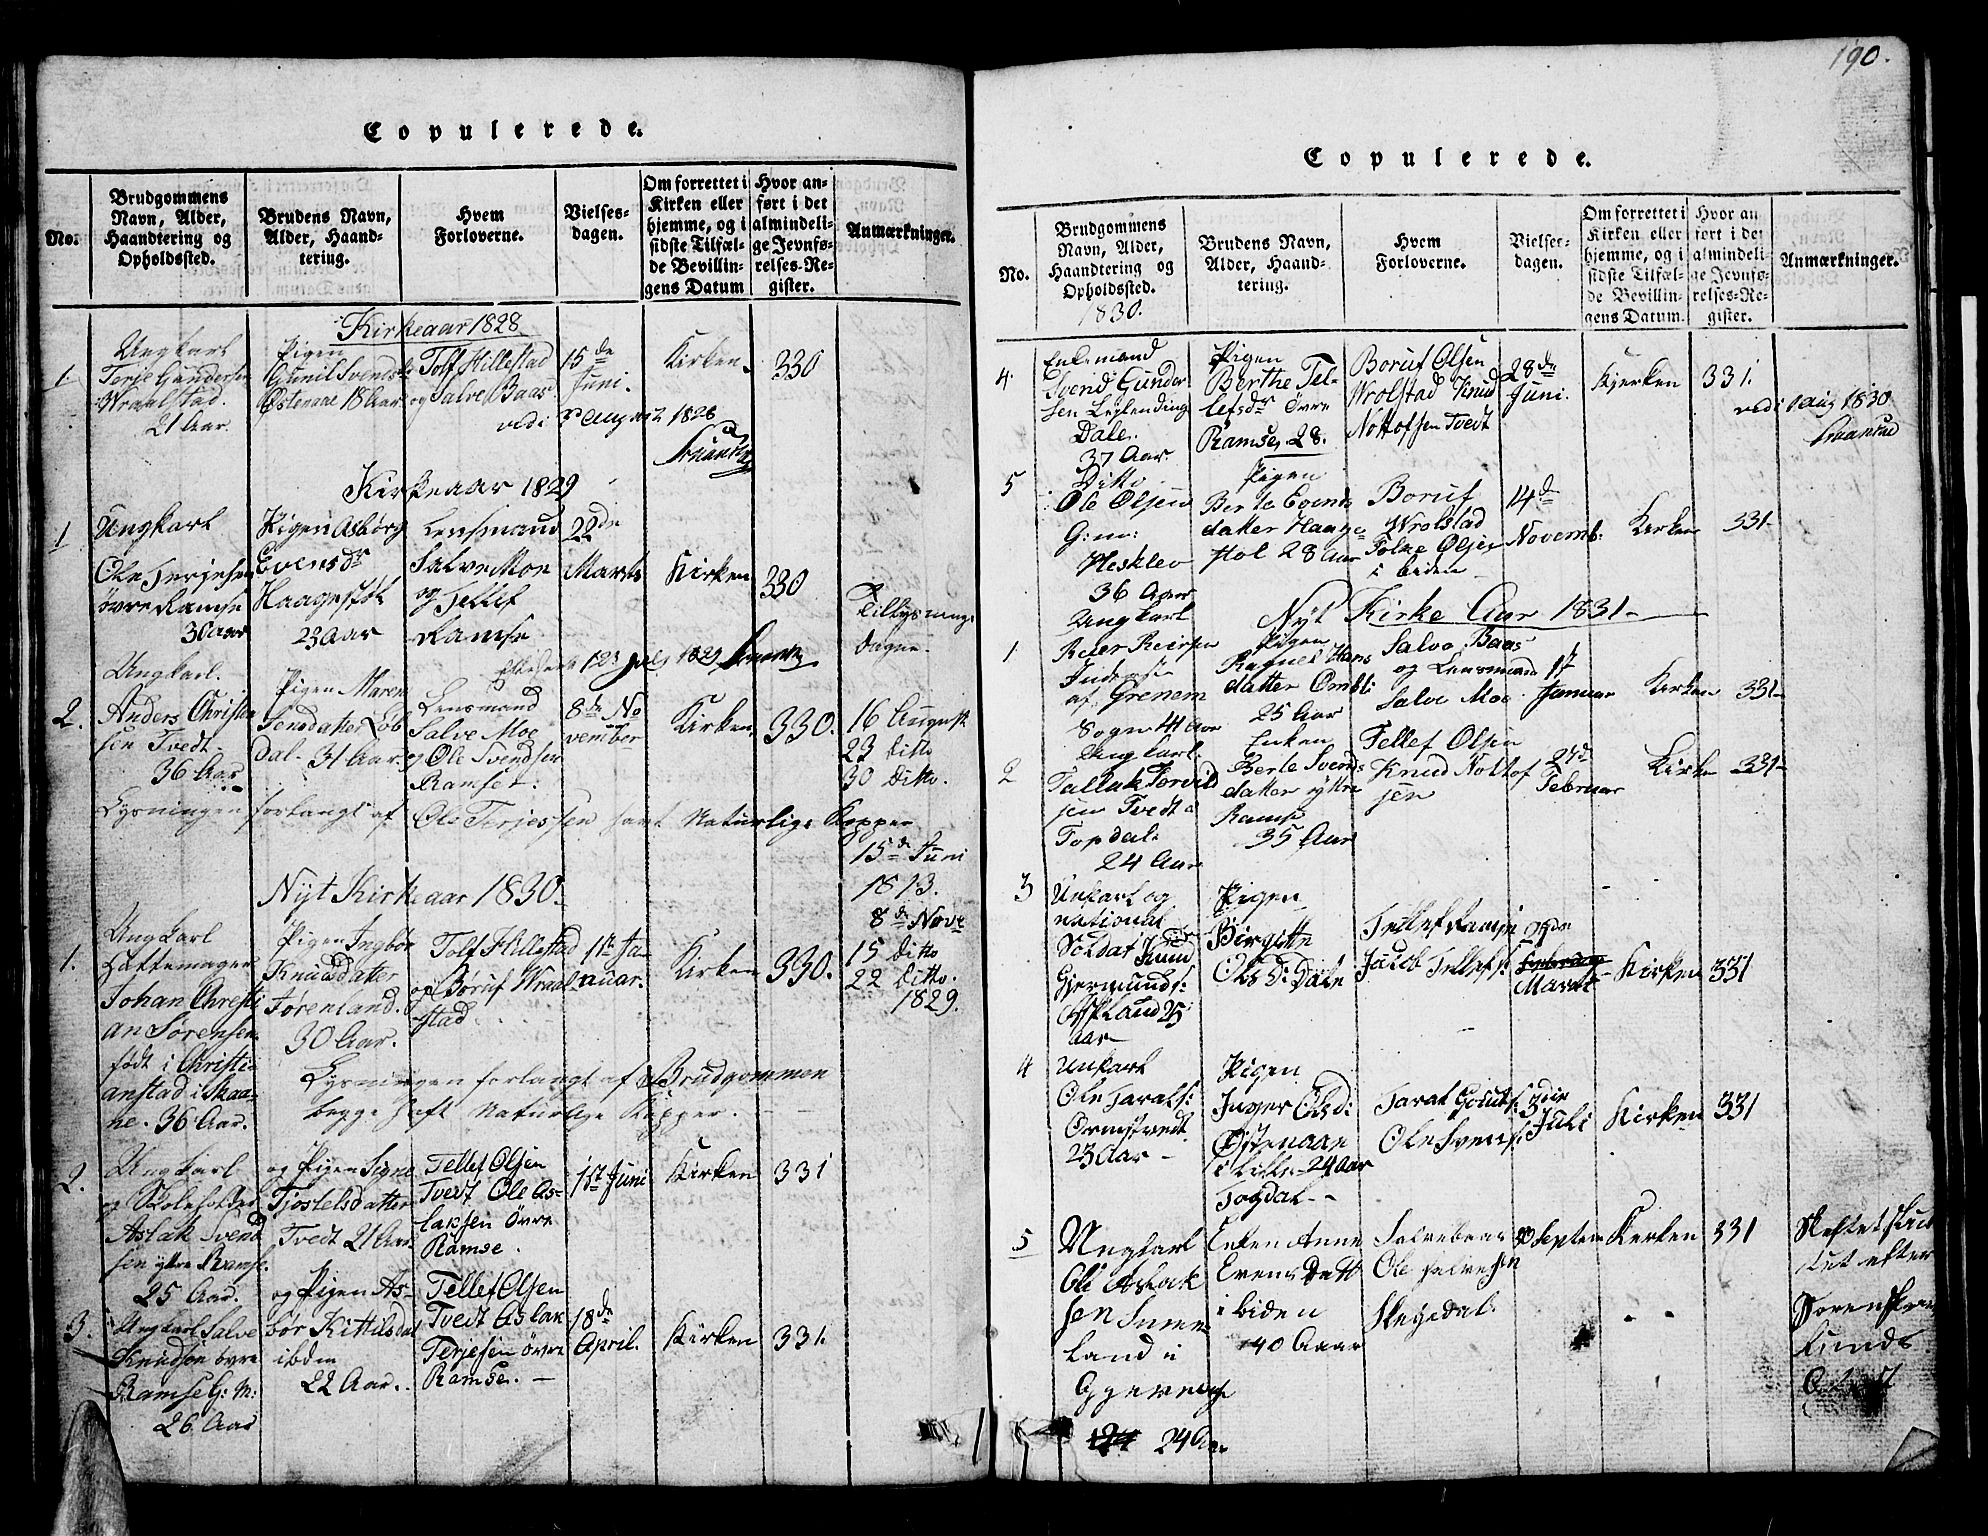 190.
Copulerede.
No.
Brudgommens Navn, Alder, Haandtering og Opholdssted.
Brudens Navn, Alder, Haandtering.
Hvem Forloverne.
Vielsesdagen.
Om forrettet i Kirken eller hjemme, og i sidste Tilfælde Bevillingens Datum
Hvor anført i det almindelige Jevnførelses-Register.
Anmærkninger.
Kirkeaar 1828
1.
Ungkarl
Terje Gundersen
Wraalstad.
21 Aar.
Pigen
Gunil Svensdr
Østenaae 18 Aar
Tolf Hillestad
og Salve Baas
15de
Juni.
Kirken.
330
1828
Kirkeaar 1829
1
Ungkarl
Ole Terjesen
övre Ramse
30 aar
Pigen Asbörg
Evensdr
Haagestøl
23 Aar
Lensmand
Salve Moe
og Tellef
Ramse
22de
Marts
Kirken
330
Tillysnings
dagene.
2.
Ungkarl.
Anders Christen
sen Tvedt.
36 Aar
Pigen Maren
Jensdatter Lob
dal. 31 Aar.
Lensmand
Salve Moe
og Ole Svendsen
Ramse.
8de No
vember
Kirken
330.
16 August
23 Ditto
30 Ditto.
Lysningen forlangt af Ole Terjessen haft Naturlige Kopper
15de Juni
1813.
Nyt Kirkeaar 1830.
1.
Ungkarl
Hattemager
Johan Christi
an Sørensen
født i Christi-
anstad i Skaa-
ne. 36 Aar.
Pigen Ingbör
Knudsdatter
Jørenland.
30 Aar.
Tolf Hillestad
og Børuf Wraal
stad.
1ste Ja
nuar.
Kirken
330.
8de Novr
15 Ditto
22 Ditto.
1829.
Lysningen forlangt af Brudgommen
begge haft Naturlige Kopper.
2.
Ungkarl
og Skoleholder
Aslak Svend
sen yttre Ramse.
25 Aar.
og Pigen Signe
Tjostelsdatter
Tvedt 21 Aar
Tellef Olsen
Tvedt Ole As-
laksen Övre
Ramse.
1ste Juni
Kirken
331
3.
Ungkarl Salve
Knudsen övre
Ramse G: M:
26 Aar
og Pigen As-
bör Kittilsdat
ibdm
22 Aar.
Tellef Olsen
Tvedt Aslak
Terjesen övre
Ramse.
18de
April.
Kirken
331.
Copulerede.
No.
Brudgommens Navn, Alder, Haandtering og Opholdssted.
1830.
Brudens Navn, Alder, Haandtering.
Hvem Forloverne.
Vielsesdagen.
Om forrettet i Kirken eller hjemme, og i sidste Tilfælde Bevillingens Datum.
Hvor anført i det almindelige Jevnførelses-Register.
Anmærkninger.
4.
Enkemand
Svend Gunder
sen
Dale.
37 Aar.
Pigen
Berthe Tel-
lefsdr Övre
Ramse, 28.
Boruf Olsen
Wrolstad Knud
Nottofsen Tvedt
28de
Juni.
Kjerken
331.
1 Aug 1830
5
Ditto
Ole Olsen
G: m:
Hesklev
36 Aar
Pigen
Berte Evends
datter Haage
Høl 28 Aar
Boruf
Wrolstad
Tolne Olsen
i beiden
14de
Novemb:
Kirken
331
Nyt Kirke Aar 1831
1
Ungkarl
Reier Reiersen
af Grenem
Sogn 44 Aar
Pigen
Ragnil Hans
datter Ømbli
25 Aar
Salve Baas
og Lensmand
Salve Moe
1st
Januar
Kirken
331
2
Ungkarl.
Tallak Torvild
sen Tvedt
Topdal
24 Aar
Enken
Berte Svends
datter yttre
Ramse
35 Aar
Tellef Olsen
Knud Nottof
sen
Februar
Kirken
331
3
Unkarl og
national
Soldat Knud
Gjermunds:
25
Aar
Pigen
Birgitte
Ols D: Dale
Tellef Ramse
Jacob Tellefs:
Marts
Kirken
331
4
Unkarl
Ole Taralds:
Ormstvedt
23 Aar
Pigen
Inger Ols D:
Østenaae
i Lille 24 Aar
Togdal
Tarald
Ole Svens:
3die
Juli
Kirken
331
5
Ungkarl
Ole Aslak
sen
land i
24 Aar
Enken Anne
Evens Datt
i biden
40 Aaar
Salvebaas
Ole salvesen
Skegedal
30 Septem
Kerken
331
Skeftet slut
tet efter
Sorenskre